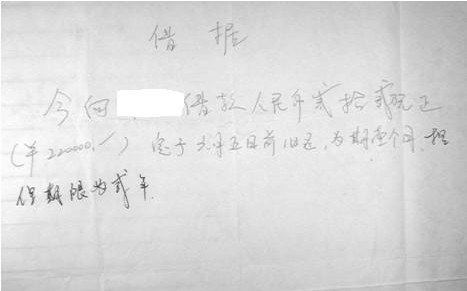 借据
今向 借款人民币贰拾贰万正
(¥220000.-/) 定于六月五日前归还,为期壹个月,担
保期限为贰年.